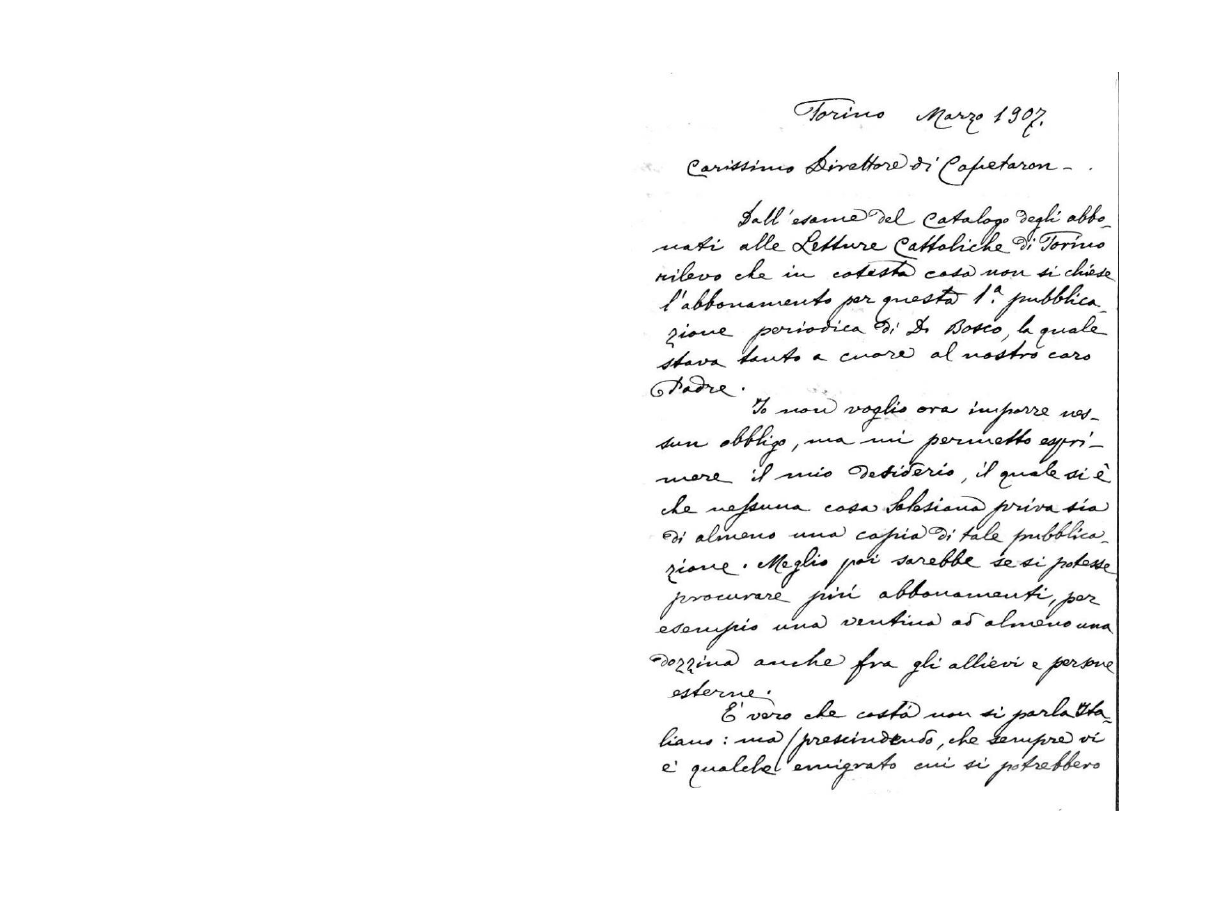 Torino Marzo 1907.
Carissimo Direttore di Capetaron - .
Dall'esame del Catalogo degli abbo-
nati alle Letture Cattoliche di Torino
rilevo che in cotesta casa non si chiese
l'abbonamento per questa 1.ª pubblica-
zione periodica di D. Bosco, la quale
stava tanto a cuore al nostro caro
Padre.
Io non voglio ora imporre nes-
sun obbligo, ma mi permetto espri-
mere il mio desiderio, il quale si è
che nessuna casa Salesiana priva sia
di almeno una copia di tale pubblica-
zione. Meglio poi sarebbe se si potesse
procurare più abbonamenti, per
esempio una ventina od almeno una
dozzina anche fra gli allievi e persone
esterne.
E' vero che costà non si parla Ita-
liano: ma prescindendo, che sempre vi
è qualche emigrato cui si potrebbero